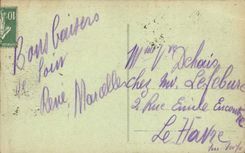 10
Bons baisers
de tous
René, Marcelle
Mme Vve Dehais
chez Mr Lefebure
2 Rue Emile Encontre
Le Havre